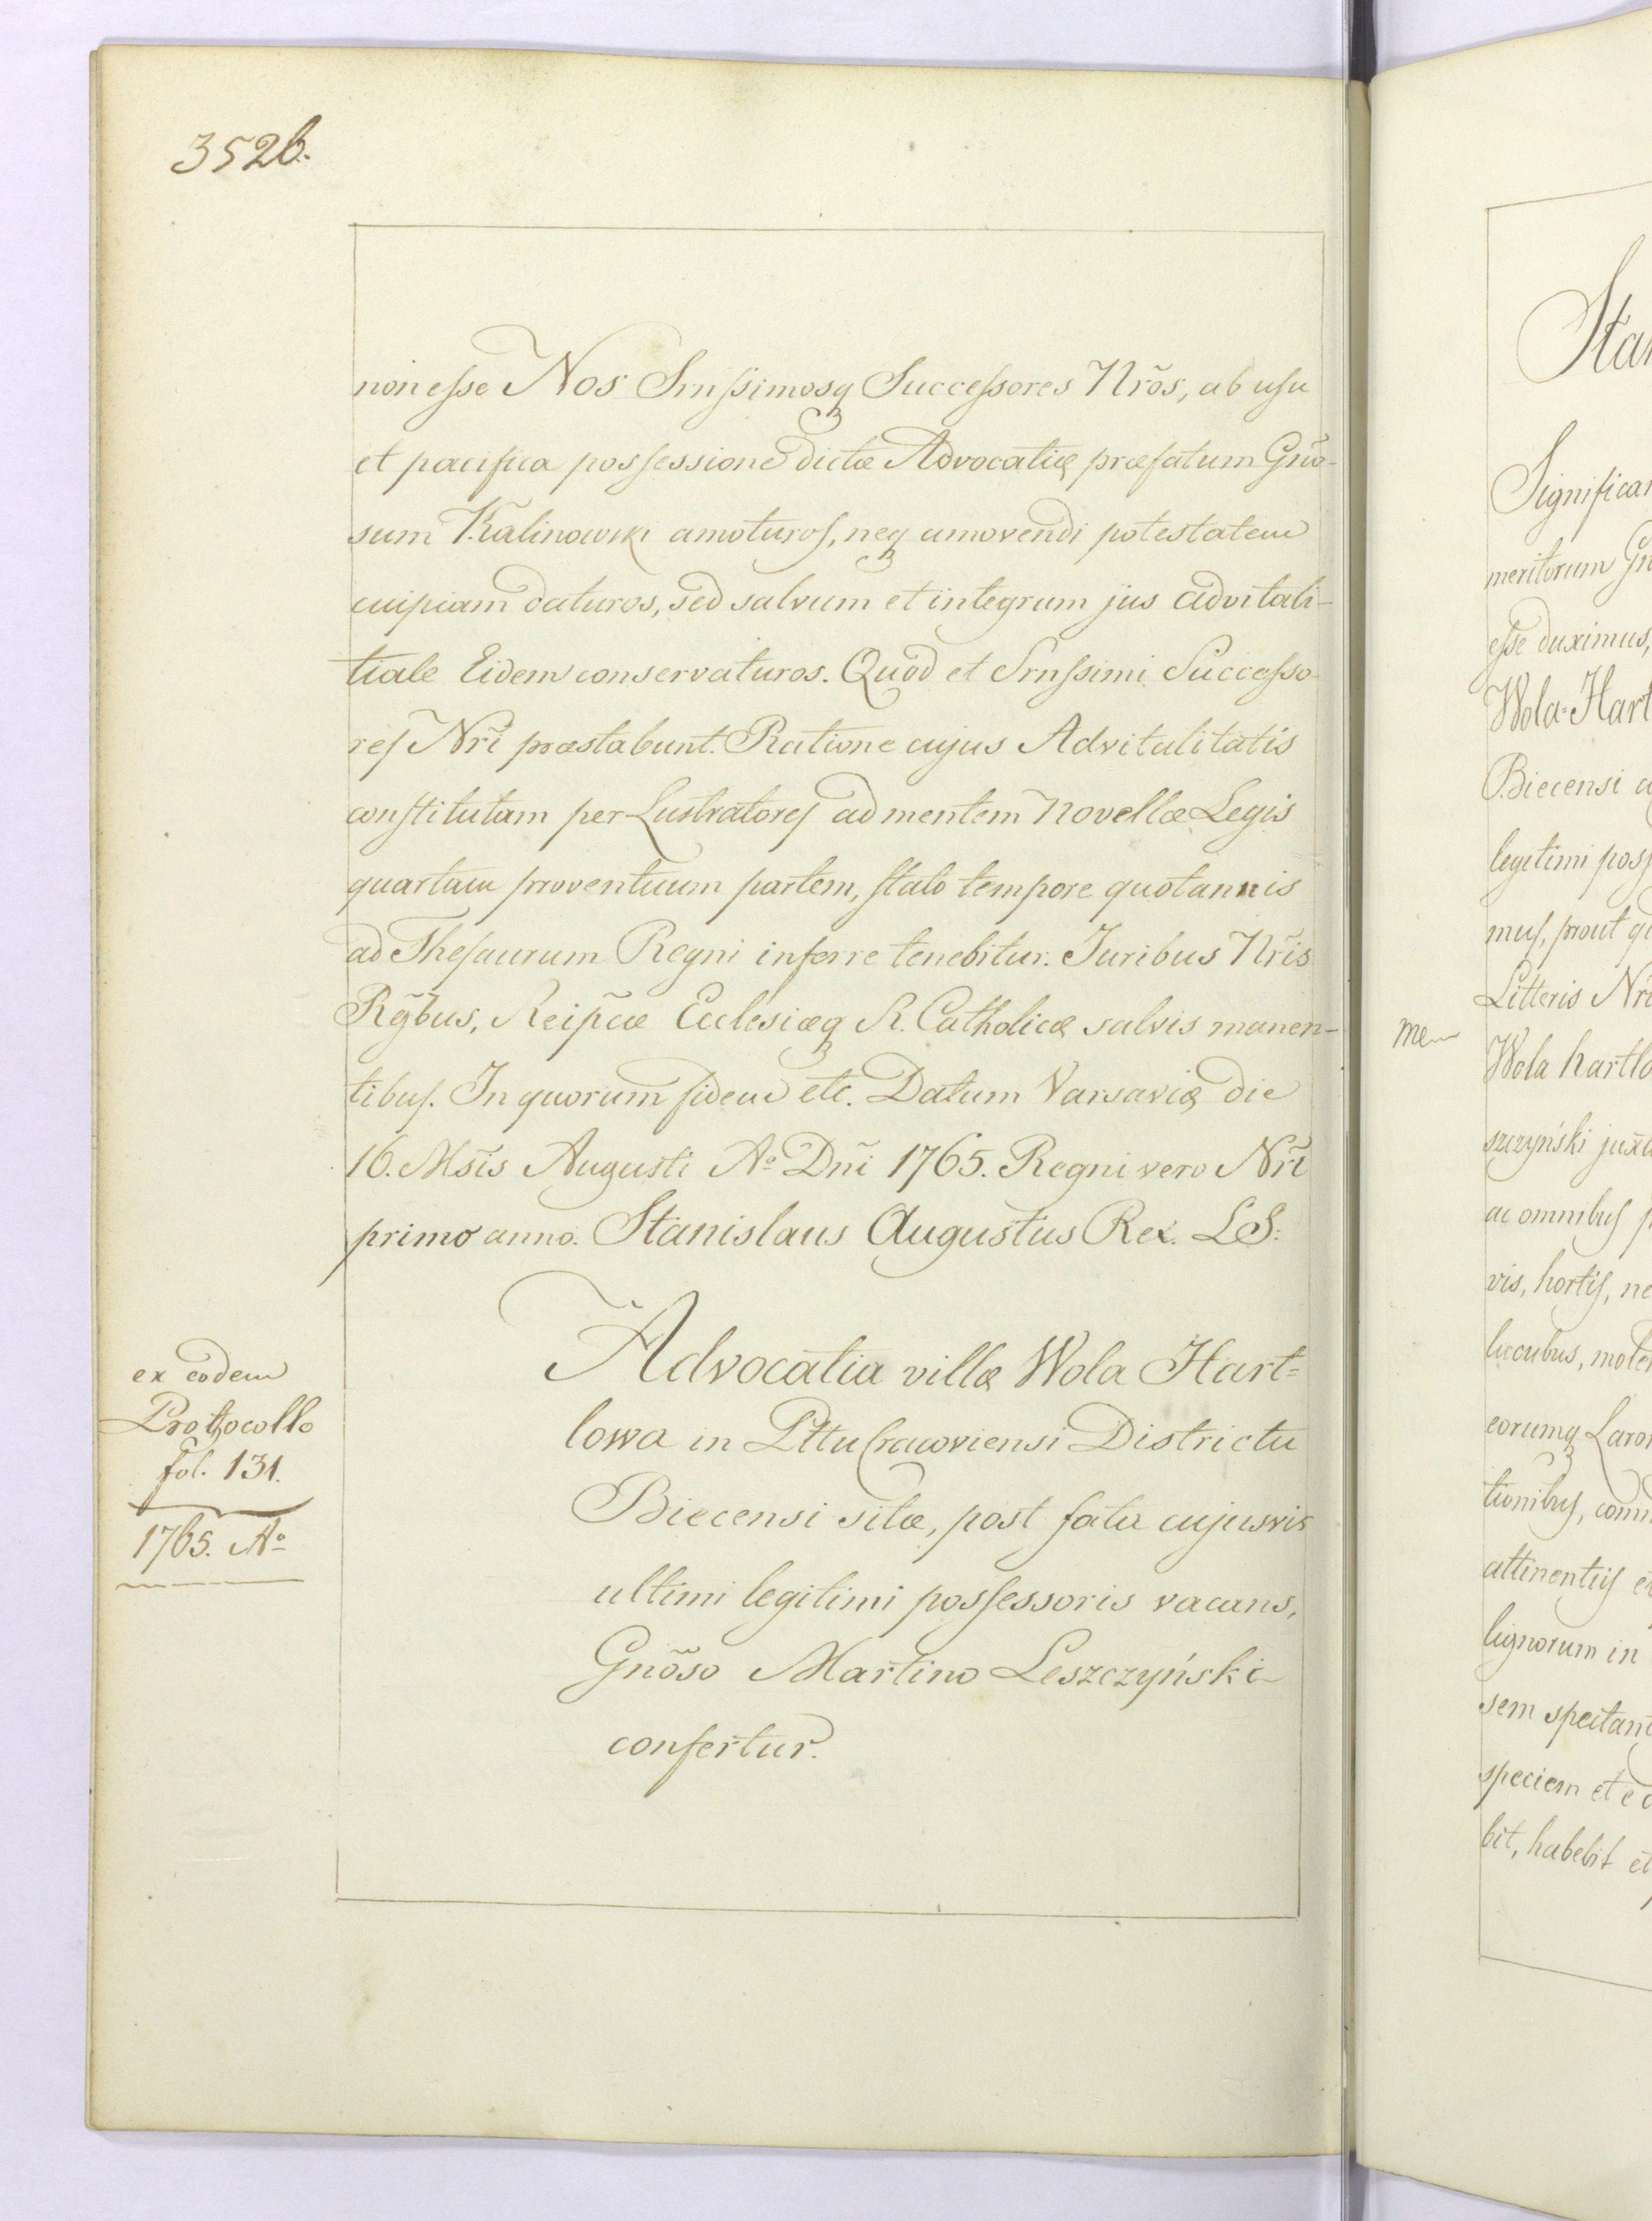 352b.
non esse Nos Srnssimosq Successores Nr̃os, ab usu
et pacifica possessione dictæ Advocatiæ præfatum Gnõ-
sum Kalinowski amoturos, neq amovendi potestatem
cuipiam daturos, sed salvum et integrum jus advitali-
tiale Eidem conservaturos. Quod et Srnssimi Successo-
res Nr̃i præstabunt. Ratione cujus Advitalitatis
constitutam per Lustratores ad mentem Novellæ Legis
quartam proventuum partem, stato tempore quotannis
ad Thesaurum Regni inferre tenebitur. Juribus Nr̃is
Rg̃bus, Reip̃cæ Ecclesiæq R. Catholicæ salvis manen-
tibus. In quorum fidem etc. Datum Varsaviæ die
16. Msĩs Augusti Aº Dnĩ 1765. Regni vero Nr̃i
primo anno. Stanislaus Augustus Rex. LS:
ex eodem
Prothocollo
fol. 131.
1765. Aº
Advocatia villæ Wola Hart=
lowa in Pttu Cracoviensi Districtu
Biecensi sitæ, post fata cujusvis
ultimi legitimi possessoris vacans,
Gnõso Martino Leszczyński
confertur.
Significa
meritorum
esse duximus,
Wola-Hart
Biecensi
legitimi poss
mus, prout
Litteris Nr̃i
Wola hartlo
szczyński juxta
ac omnibus
vis, hortis, ne
lacubus, mole
eorumq
tionibus,
attinentiis
lignorum in
sem spectant
speciem et
bit, habebit et